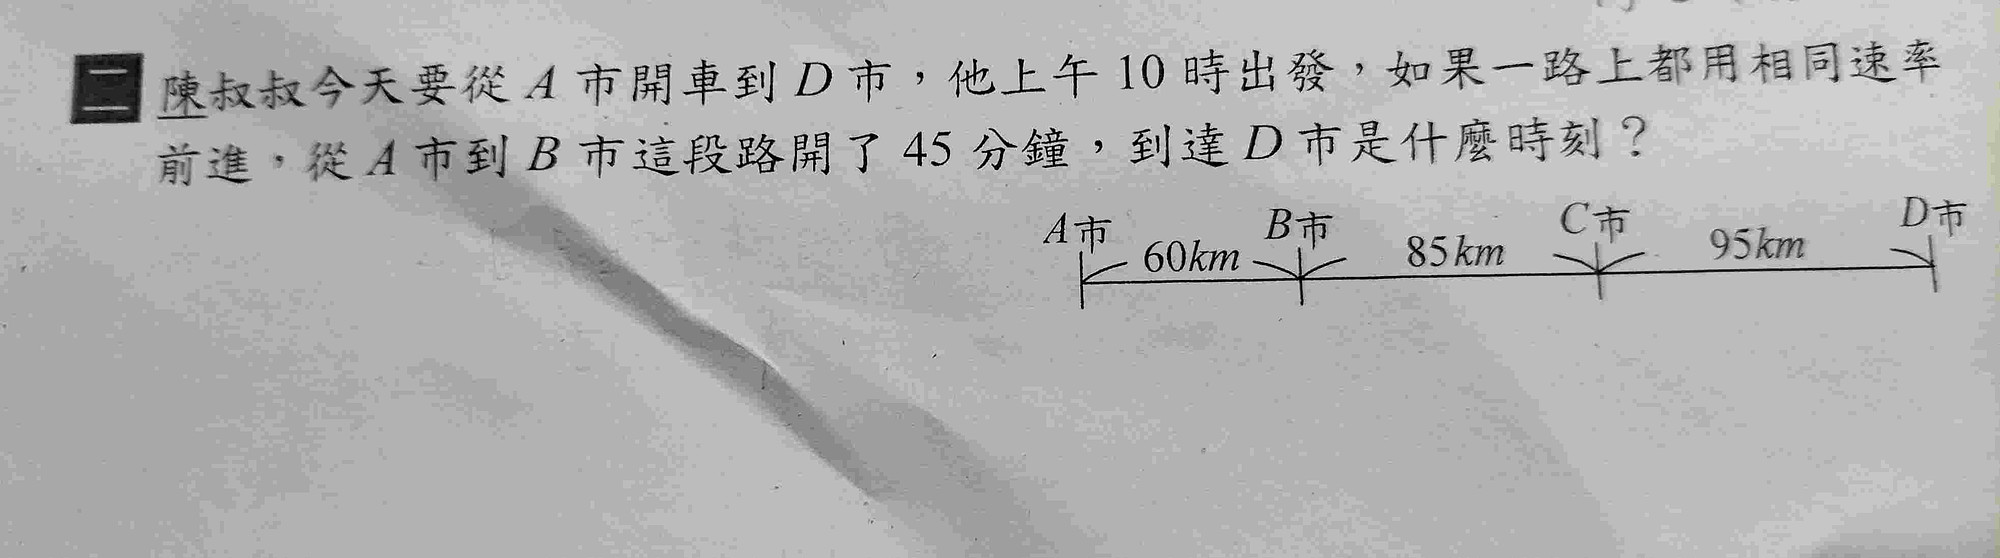 二 陳叔叔今天要從 A 市開車到 D 市，他上午 10 時出發，如果一路上都用相同速率
前進，從 A 市到 B 市這段路開了 45 分鐘，到達 D 市是什麼時刻？
A市 B市 C市 D市
60km 85km 95km